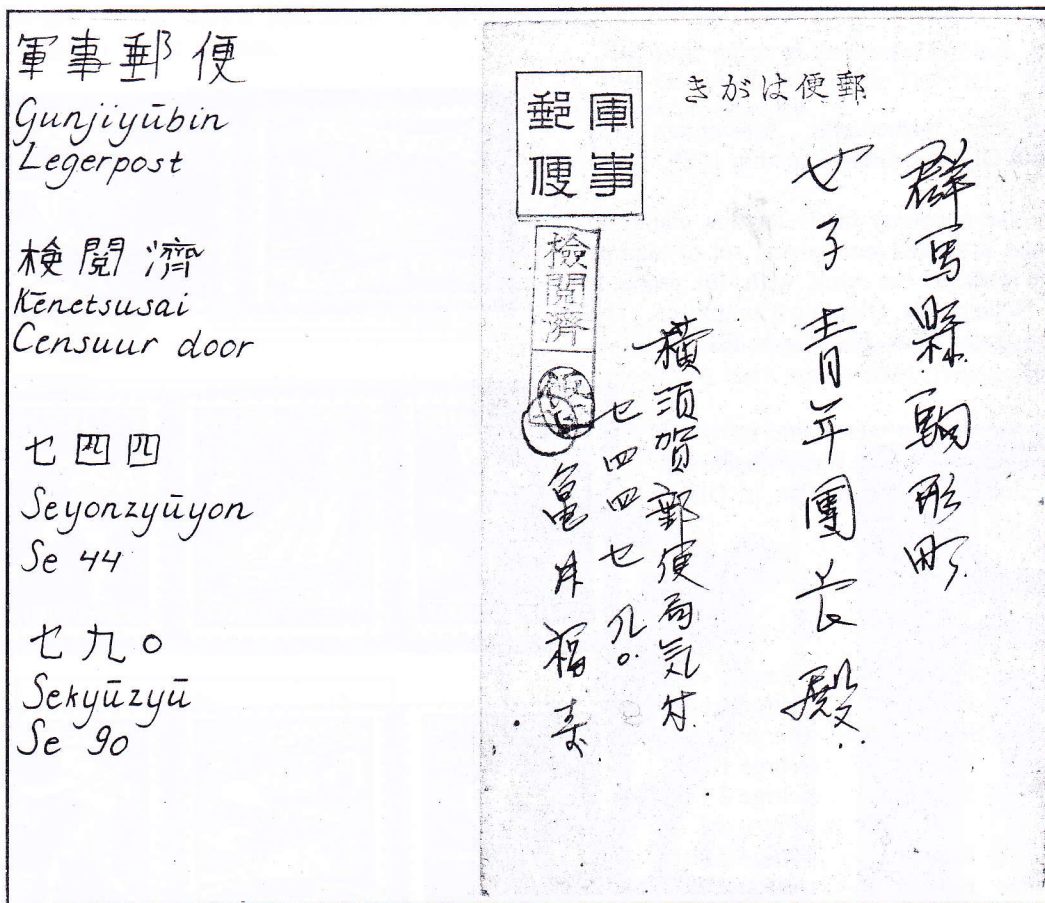 軍事郵便
Gunjiyūbin
Legerpost
検閲濟
Kēnetsusai
Censuur door
セ四四
Seyonzyūyon
Se 44
セ九〇
Sekyūzyū
Se 90
きがは便郵
軍事
郵便
檢閲濟
群馬縣駒形町
女子青年團長殿
横須賀郵便局気付
セ四四セ九〇
亀井福寿